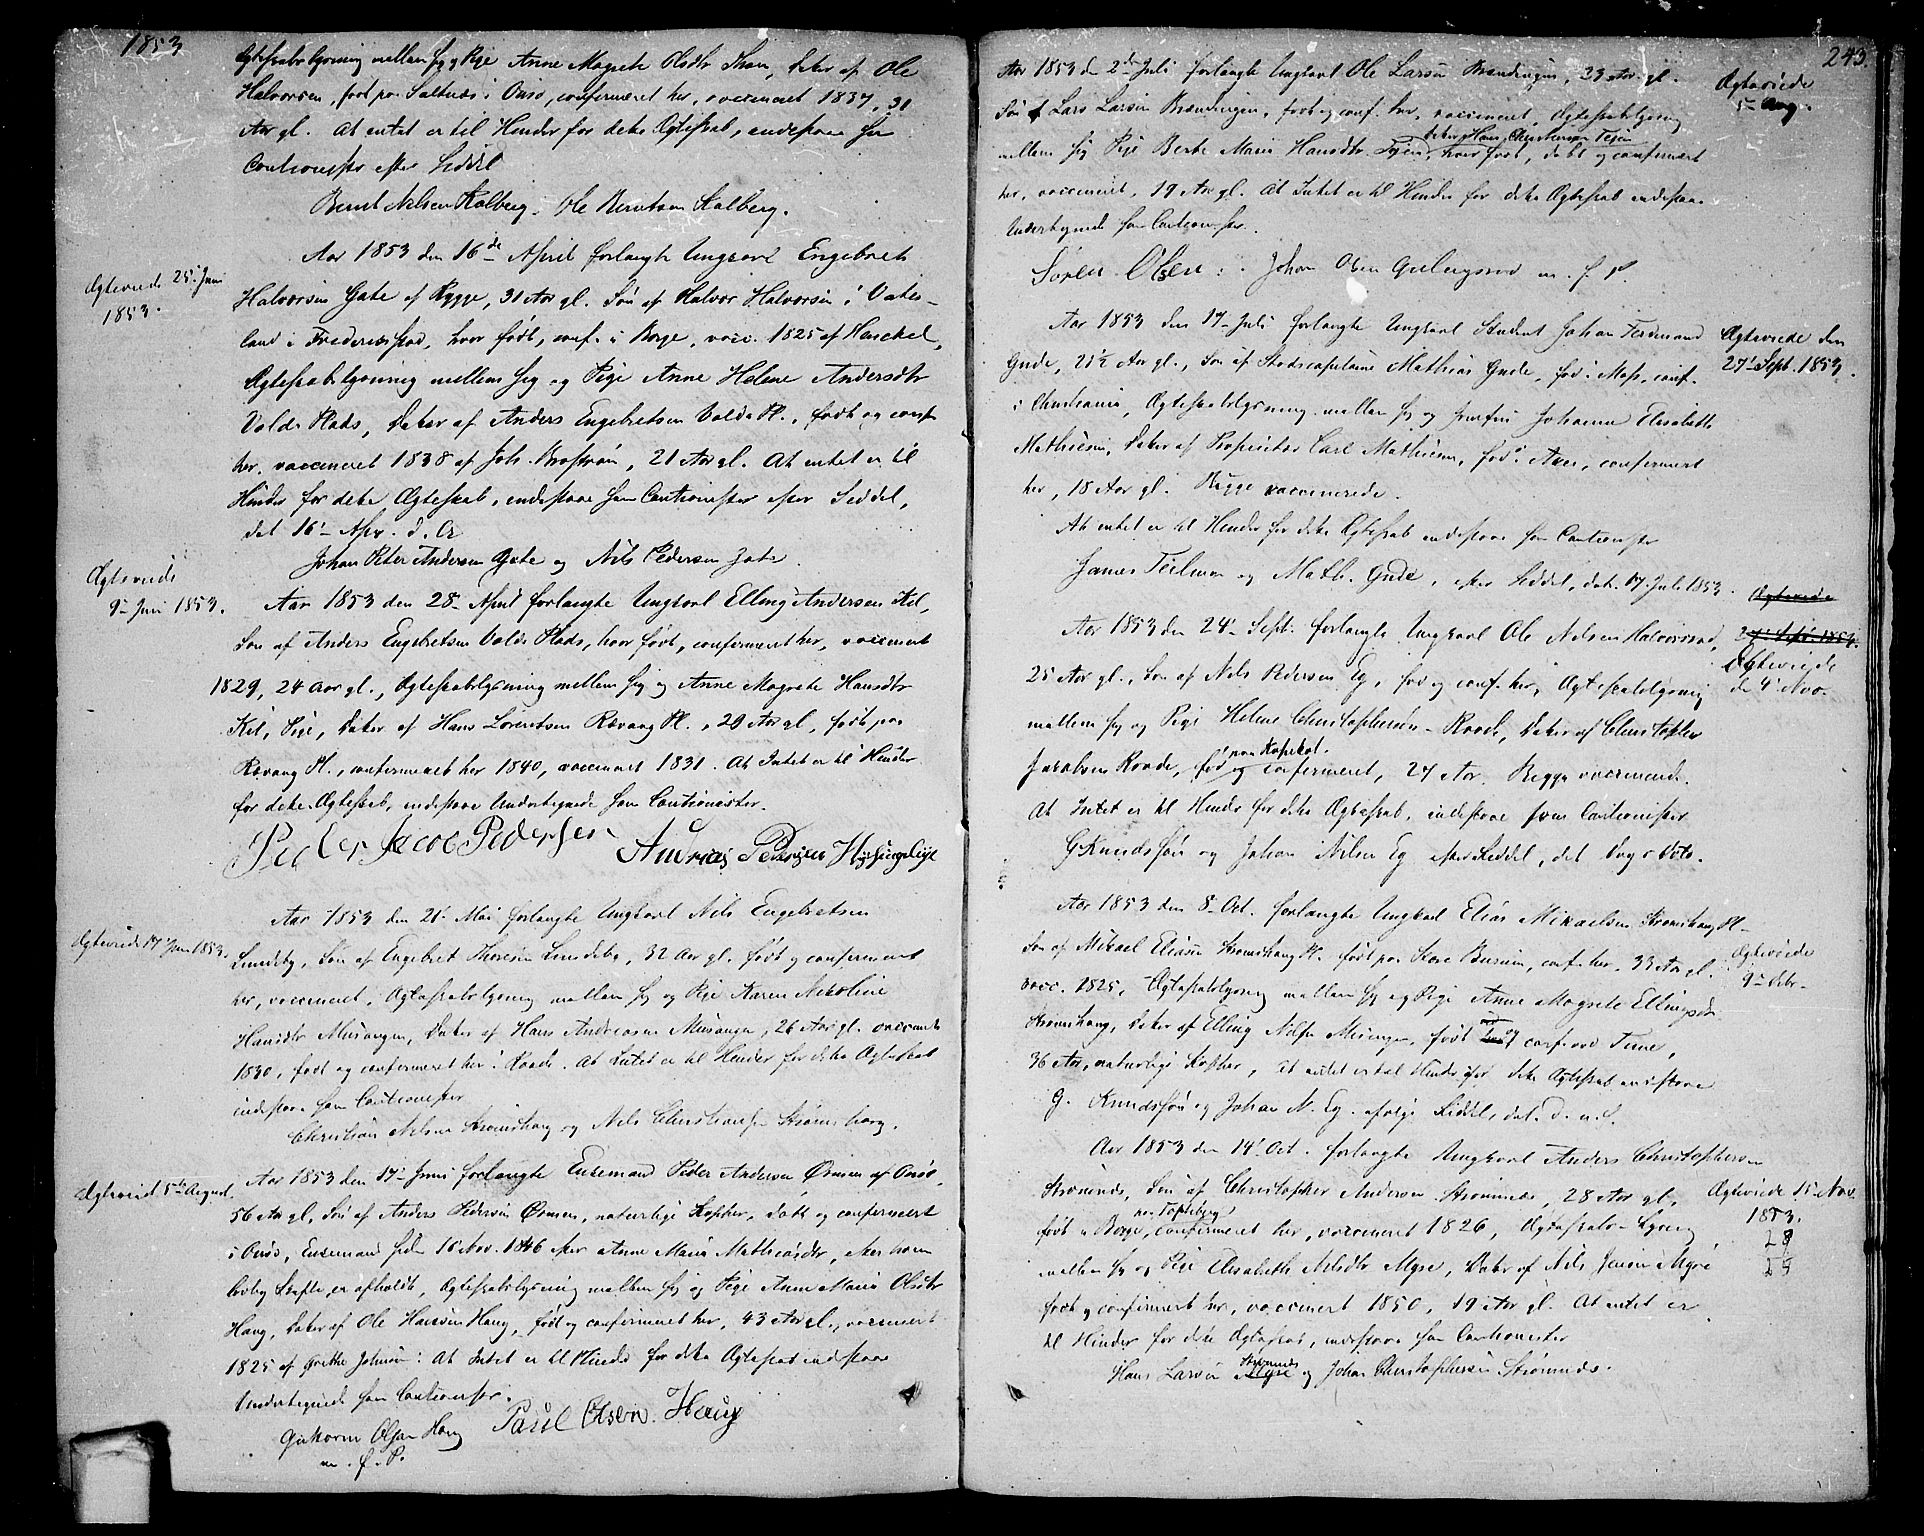 1853
Ægteskabslysning mellem sig og Pige Anne Magrete Olsdtr Skau, Datter af Ole
Halvorsen, født paa Saltnæs i Onsø, confirmeret her, vaccineret 1837, 31
Aar gl. At intet er til Hinder for dette Ægteskab, indestaae som
Cautionister efter Seddel
Bernt Nilsen Kalberg. Ole Berntsen Kalberg.
Ægteviede 25. Juni
1853.
Aar 1853 den 16de April forlangte Ungkarl Engebret
Halvorsen Gate af Rygge, 31 Aar gl. Søn af Halvor Halvorsen i Vater-
land i Frederikstad, hvor født, conf. i Borge, vacc. 1825 af Henckel,
Ægteskabslysning mellem sig og Pige Anne Helene Andersdtr
Valde Plads, Datter af Anders Engebretsen Valde Pl., født og conf.
her, vaccineret 1838 af Joh. 21 Aar gl. At intet er til
Hinder for dette Ægteskab, indestaae som Cautionister efter Seddel,
dat 16' Apr. d. A.
Johan Peter Andersen Gate og Nils Pedersen Gate.
Ægteviede
9' Juni 1853.
Aar 1853 den 28' April forlangte Ungkarl Elling Andersen Kil,
Søn af Anders Engebretsen Valde Plads, hvor født, confirmeret her, vaccineret
1829, 24 Aar gl., Ægteskabslysning mellem sig og Anne Magrete Hansdtr
Kil, Pige, Datter af Hans Lorentsen Ravang Pl., 29 Aar gl., født paa
Ravang Pl., confirmeret her 1840, vaccineret 1831. At Intet er til Hinder
for dette Ægteskab, indestaae Undertegnede som Cautionister.
Peder Jacob Pedersen Andreas Pedersen
Ægteviede 17 Juni 1853.
Aar 1853 den 21' Mai forlangte Ungkarl Nils Engebretsen
Lundeby, Søn af Engebret Thoresen Lundeby, 32 Aar gl. født og confirmeret
her, vaccineret, Ægteskabslysning mellem sig og Pige Karen Nikoline
Hansdtr Musangen, Datter af Hans Andreasen Musangen, 26 Aar gl. vaccineret
1830, født og confirmeret her i Raade. At Intet er til Hinder for dette Ægteskab
indestaae som Cautionister
Christian Nilsen Kromshaug og Nils Christiansen Strømshaug.
Ægteviede 5te August.
Aar 1853 den 17' Juni forlangte Enkemand Peder Andersen Ørmen af Onsø,
56 Aar gl, Søn af Anders Pedersen Ørmen, naturlige Kopper, født og confirmeret
i Onsø, Enkemand siden 10 Nov. 1846 efter Anne Maria Mathiasdtr, efter hvem
lovlig Skifte er afholdt, Ægteskabslysning mellem sig og Pige Anne Maria Olsdtr
Haug, Datter af Ole Hansen Haug, født og confirmeret her, 43 Aar gl., vaccineret
1825 af Grethe Johnsen: At Intet er til Hinder for dette Ægteskab indestaae
Undertegnede som Cautionister.
Guttorm Olsen Haug Paul Olsen. Haug
m. f. P.
243.
Aar 1853 d 2den Juli forlangte Ungkarl Ole Larsen Brændingen, 23 Aar gl.
Søn af Lars Larsen Brændingen, født og conf. her, vaccineret, Ægteskabslysning
Datter af Hans Christensen Tejen
mellem sig Pige Berte Maria Hansdtr Tejen, hvor født, døbt og confirmeret
her, vaccineret, 19 Aar gl. At Intet er til Hinder for dette Ægteskab indestaae
Undertegnede som Cautionister.
Ægteviede
5te Aug.
Sören Olsen: Johan Olsen m. f. P.
Aar 1853 den 17' Juli forlangte Ungkarl Student Johan Ferdinand
Gude, 21½ Aar gl., Søn af Stadscapitaine Mathias Gude, fød i Moss, conf.
i Christiania, Ægteskabslysning mellem sig og Frøken Johanne Elisabeth
Mathiesen, Datter af Proprietær Carl Mathiesen, fød i Aker, confirmeret
her, 18 Aar gl. Begge vaccinerede.
At intet er til Hinder for dette Ægteskab indestaae som Cautionister
James Teilman og Math. Gude, efter Seddel, dat. 17 Juli 1853.
Ægteviede den
27' Sept. 1853.
Aar 1853 den 24' Sept. forlangte Ungkarl Ole Nilsen Halvorsrød,
25 Aar gl., Søn af Nils Pedersen Eg, fød og conf. her, Ægteskabslysning
mellem sig og Pige Helene Christophersdtr Raade, Datter af Christopher
paa Kapskot.
Jacobsen Raade, fød og confirmeret, 27 Aar. Begge vaccinerede.
At Intet er til Hinder for dette Ægteskab, indestaae som Cautionister
G Knudssøn og Johan Nilsen Eg efter Seddel, dat. Dags Dato.
Ægteviede
27' Sept. 1853.
Ægteviede
de 4' Nov.
Aar 1853 den 8' Oct. forlangte Ungkarl Elias Mikaelsen Kromshaug Pl.
Søn af Mikael Eliasen Kromshaug Pl. født paa Store Burum, conf. her. 33 Aar gl.
vacc. 1825, Ægteskabslysning mellem sig og Pige Anne Magrete Ellingsdr
Kromshaug, Datter af Elling Nilsen Musangen, født og conf. ved Tune,
36 Aar, naturlige Kopper, At intet er til Hinder for dette Ægteskab indestaae
G. Knudssøn og Johan N. Eg. ifølge Seddel, dat. D. u. S.
Ægteviede
9' Decbr.
Aar 1853 den 14' Oct. forlangte Ungkarl Anders Christophersen
Strømnæs, Søn af Christopher Andersen Strømnæs, 28 Aar gl,
født i Borge, confirmeret her, vaccineret 1826, Ægteskabs-Lysning
mellem sig og Pige Elisabeth Nilsdtr Myre, Datter af Nils Jensen Myre
født og confirmert her, vaccinert 1850, 19 Aar gl. At intet er
til Hinder for dette Ægteskab, indestaae som Cautionister
Strømnæs
Hans Larsen Myre og Johan Christophersen Strømnæs.
Ægteviede 11' Nov.
1853.
28